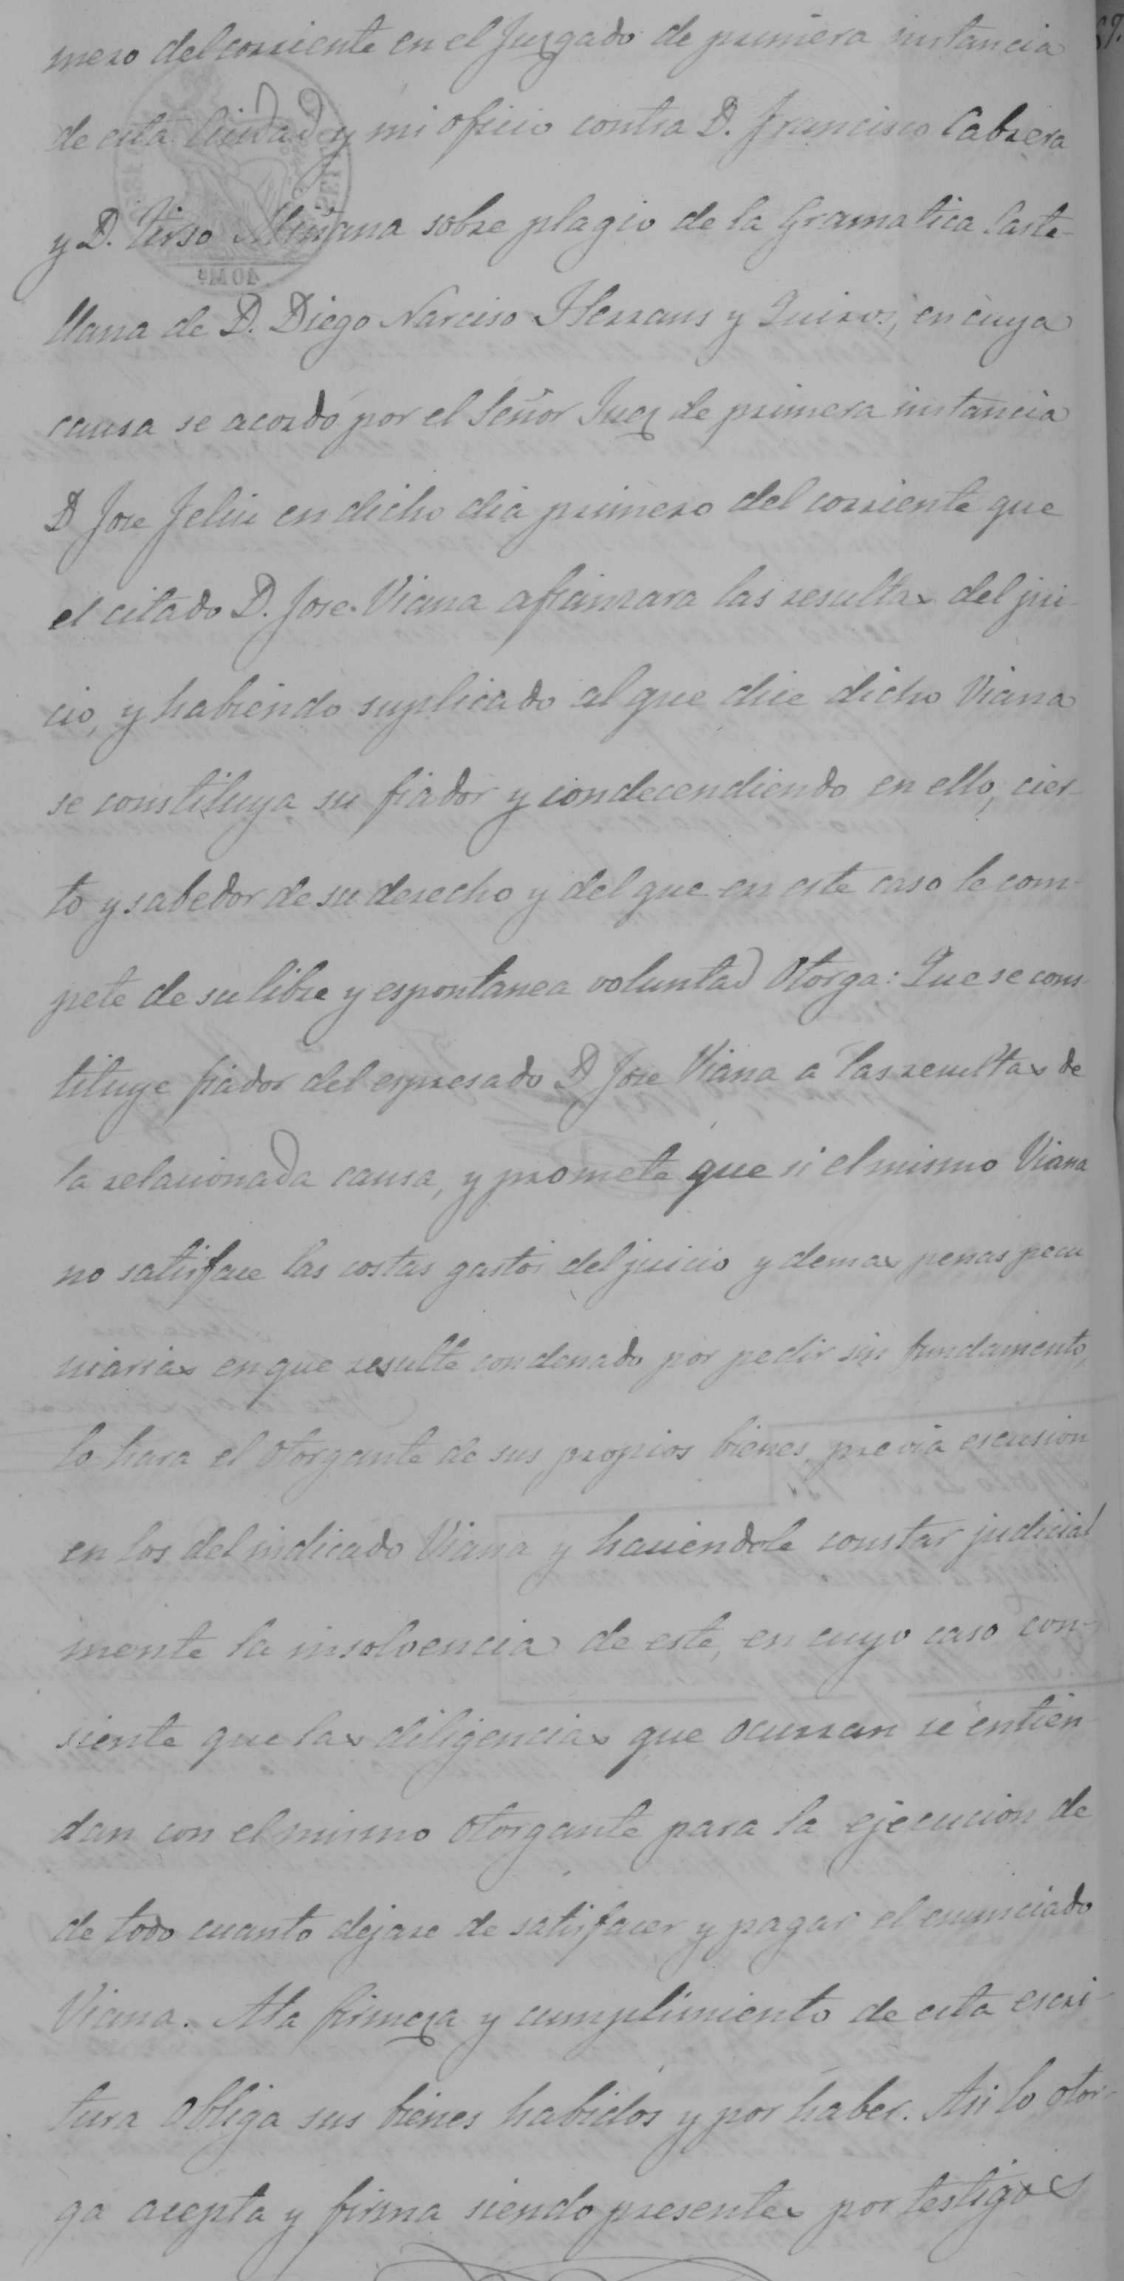 mero del corriente en el Juzgado de primera instancia
de esta Ciudad y mi oficio contra D. Francisco Cabrera
y D. Tirso Miñana sobre plagio de la Gramatica Caste-
llana de D. Diego Narciso Herranz y Quiros, en cuya
causa se acordó por el Señor Juez de primera instancia
D Jose Feliu en dicho dia primero del corriente que
el citado D. Jose Viana afianzara las resultas del jui-
cio, y habiendo suplicado al que dice dicho Viana
se constituya su fiador y condecendiendo en ello, cier-
to y sabedor de su derecho y del que en este caso le com-
pete de su libre y espontanea voluntad Otorga: Que se cons-
tituye fiador del espresado D Jose Viana a las resultas de
la relacionada causa, y promete que si el mismo Viana
no satisface las costas gastos del juicio y demas penas pecu
niarias en que resulte condenado por pedir sin fundamento,
lo hara el otorgante de sus propios bienes, previa escusion
en los del indicado Viana y haciendole constar judicial
mente la insolvencia de este, en cuyo caso con-
siente que las diligencias que ocurran se entien-
dan con el mismo otorgante para la ejecucion de
de todo cuanto dejare de satisfacer y pagar el enunciado
Viana. A la firmeza y cumplimiento de esta escri-
tura obliga sus bienes habidos y por haber. Asi lo otor-
ga acepta y firma siendo presentes por testigos